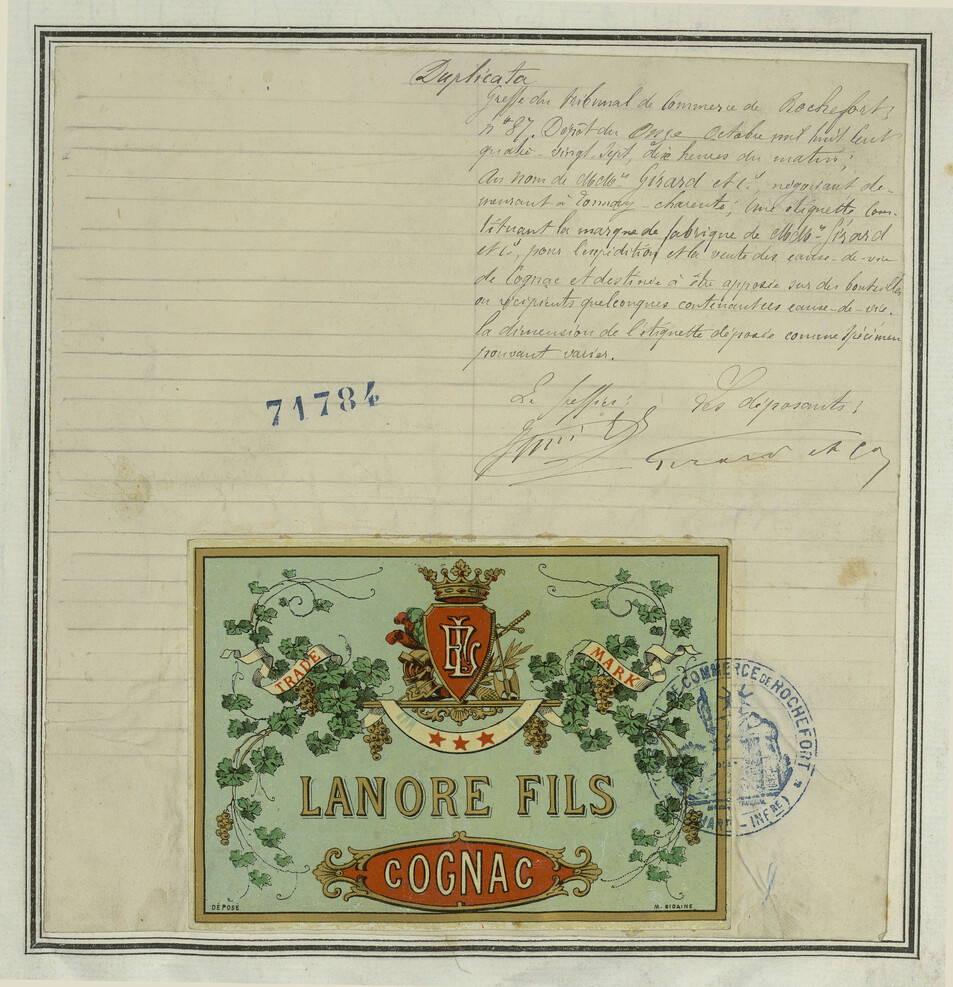 Duplicata
Greffe du Tribunal de Commerce de Rochefort;
n° 87. Dépôt du Onze Octobre mil huit cent
quatre-vingt-sept, dix heures du matin;
Au nom de MM.rs Girard et Cie, négociant de-
meurant à Tonnay-charente; Une étiquette cons-
tituant la marque de fabrique de MM.rs Girard
et Cie, pour l'expédition et la vente des eaux-de-vie
de Cognac et destinée à être apposée sur des bouteilles
ou récipients quelconques contenant ces eaux-de-vie.
La dimension de l'étiquette déposée comme spécimen
pouvant varier.
Le Greffier: Les déposants:
Girard et Co
71784
TRADE MARK
LANORE FILS
COGNAC
DÉPOSÉ
M. SIDAINE
COMMERCE DE ROCHEFORT
INFRE